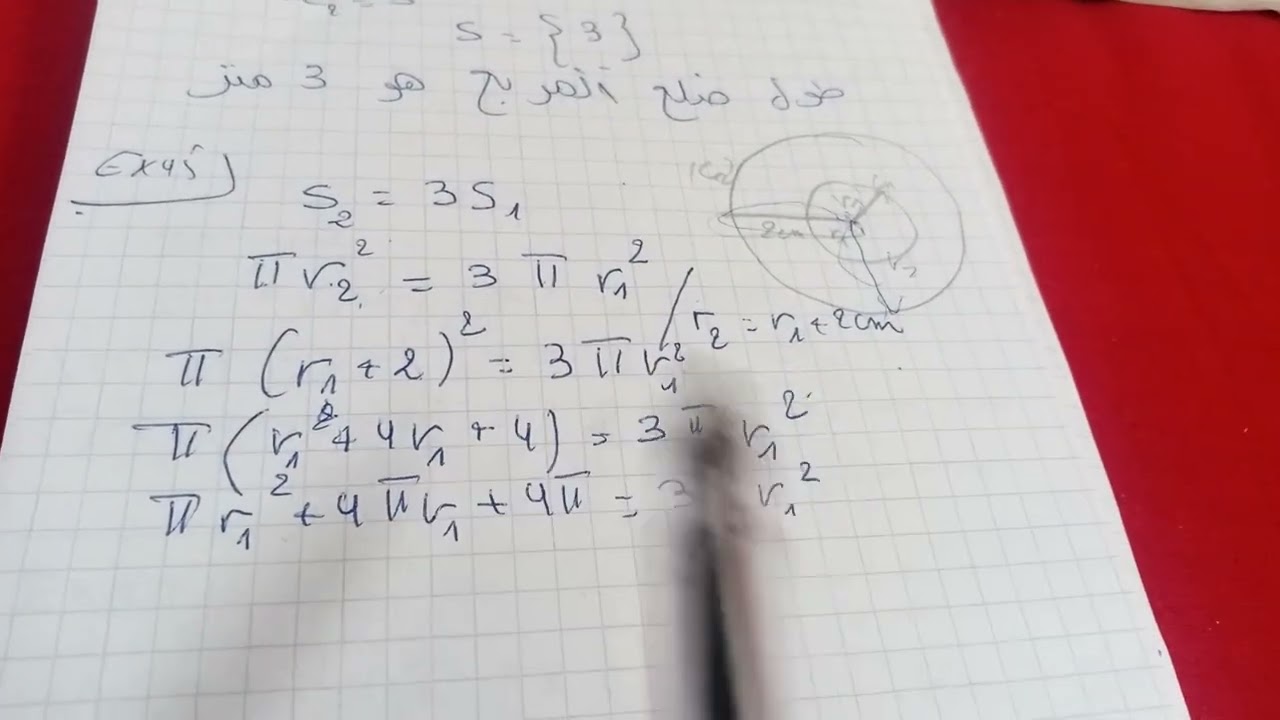 S = {3}
طول ضلع المربع هو 3 متر
Ex45)
S₂ = 3S₁
πr₂² = 3πr₁² / r₂ = r₁ + 2cm
π(r₁ + 2)² = 3πr₁²
π(r₁² + 4r₁ + 4) = 3π r₁²
πr₁² + 4πr₁ + 4π = 3 r₁²
2cm